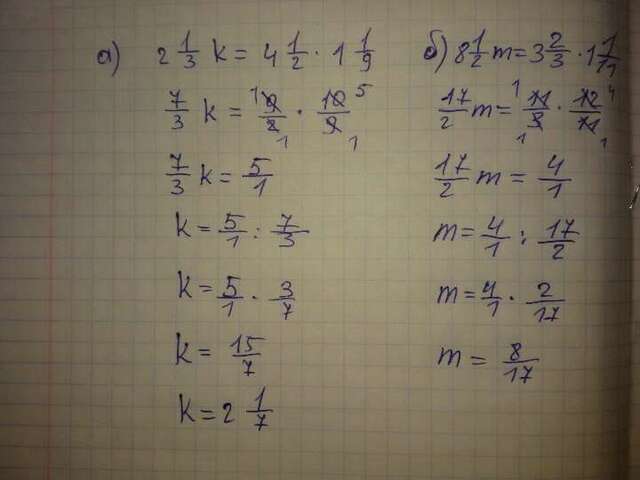 а) 2 1/3 k = 4 1/2 · 1 1/9
7/3 k = 9/2 · 10/9 1 5 1 1
7/3 k = 5/1
k = 5/1 : 7/3
k = 5/1 · 3/7
k = 15/7
k = 2 1/7
б) 8 1/2 m = 3 2/3 · 1 1/11
17/2 m = 11/3 · 12/11 1 4 1 1
17/2 m = 4/1
m = 4/1 : 17/2
m = 4/1 · 2/17
m = 8/17